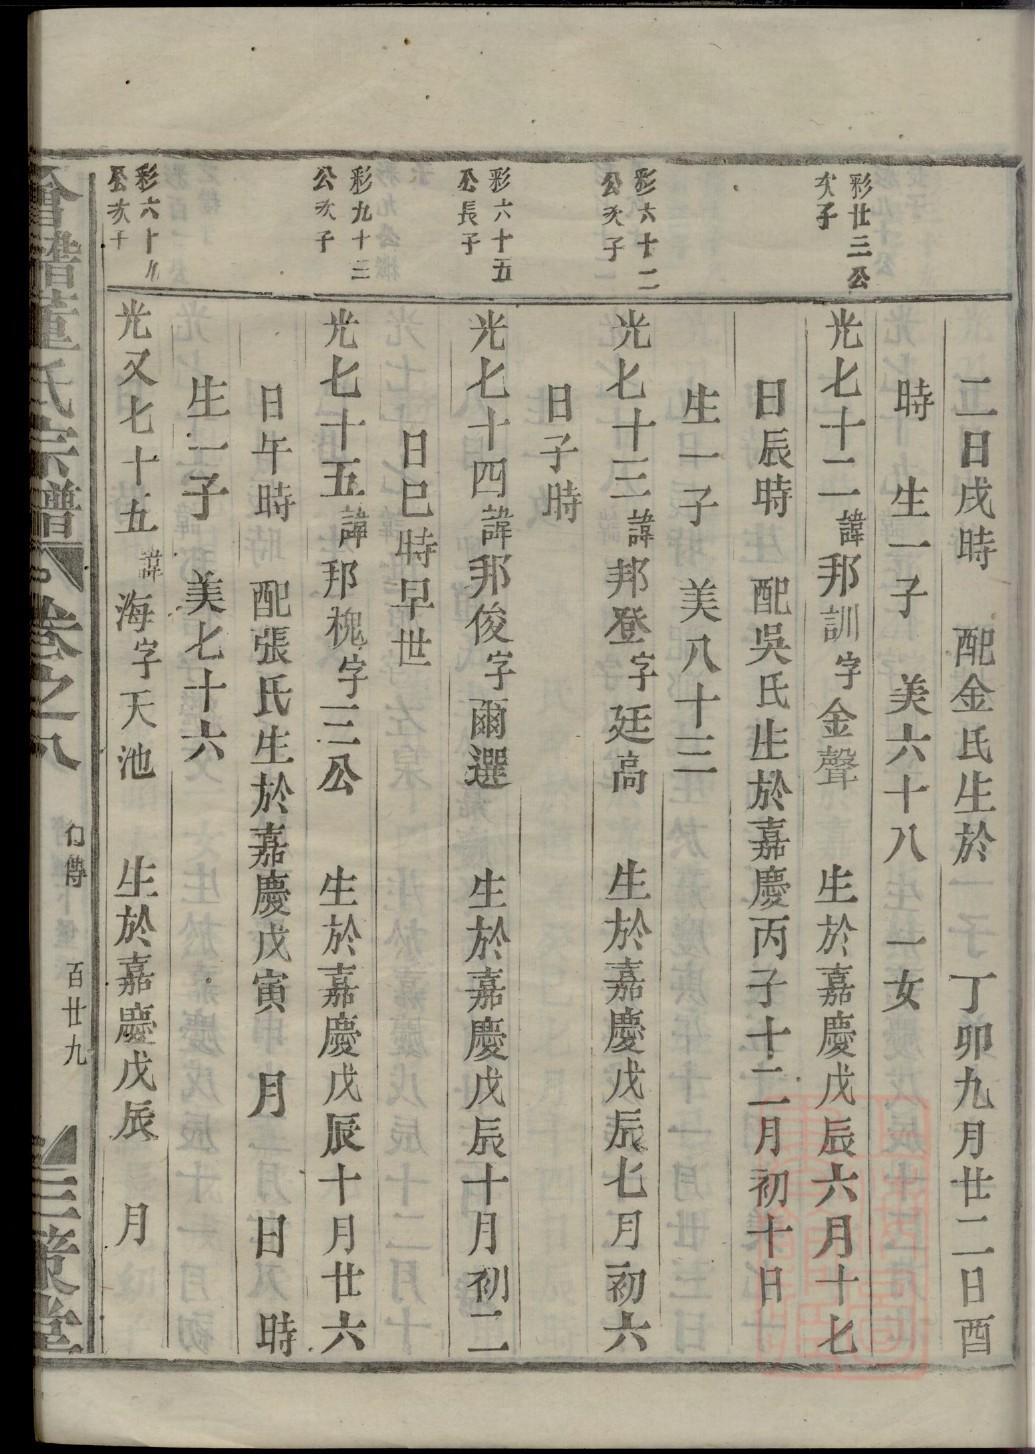 二日戌時　配金氏生於　丁卯九月廿二日酉
時　生一子　美六十八　一女
彩廿三公
次子
光七十二諱邦訓字金聲　生於嘉慶戊辰六月十七
日辰時　配吳氏生於嘉慶丙子十二月初十日
生一子　美八十三
彩六十二
公次子
光七十三諱邦登字廷高　生於嘉慶戊辰七月初六
日子時
彩六十五
公長子
光七十四諱邦俊字爾選　生於嘉慶戊辰十月初二
日巳時早世
彩九十三
公次子
光七十五諱邦槐字三公　生於嘉慶戊辰十月廿六
日午時　配張氏生於嘉慶戊寅　月　日　時
生一子　美七十六
彩六十九
公次子
光又七十五諱海字天池　生於嘉慶戊辰　月
會稽董氏宗譜　卷之八　傳　百廿九　三策堂